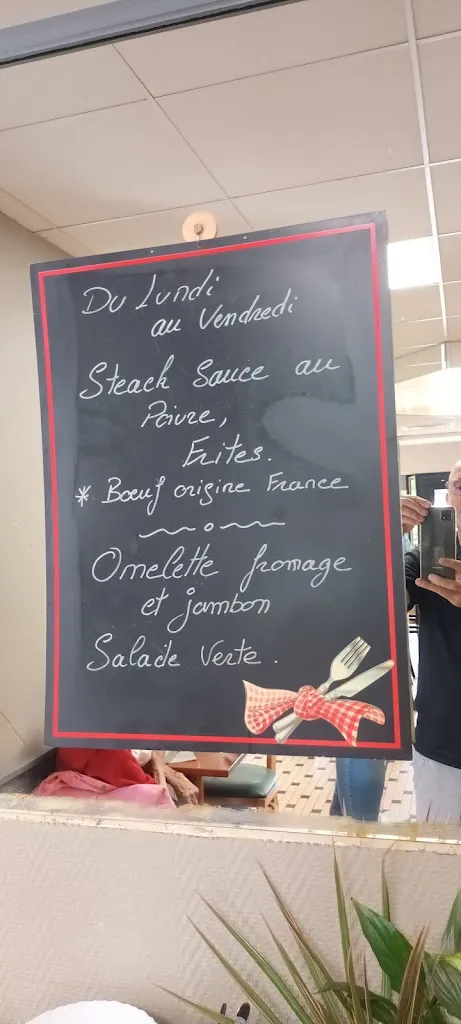 Du Lundi
au Vendredi
Steack Sauce au
Poivre,
Frites.
* Bœuf origine France
Omelette fromage
et jambon
Salade Verte.